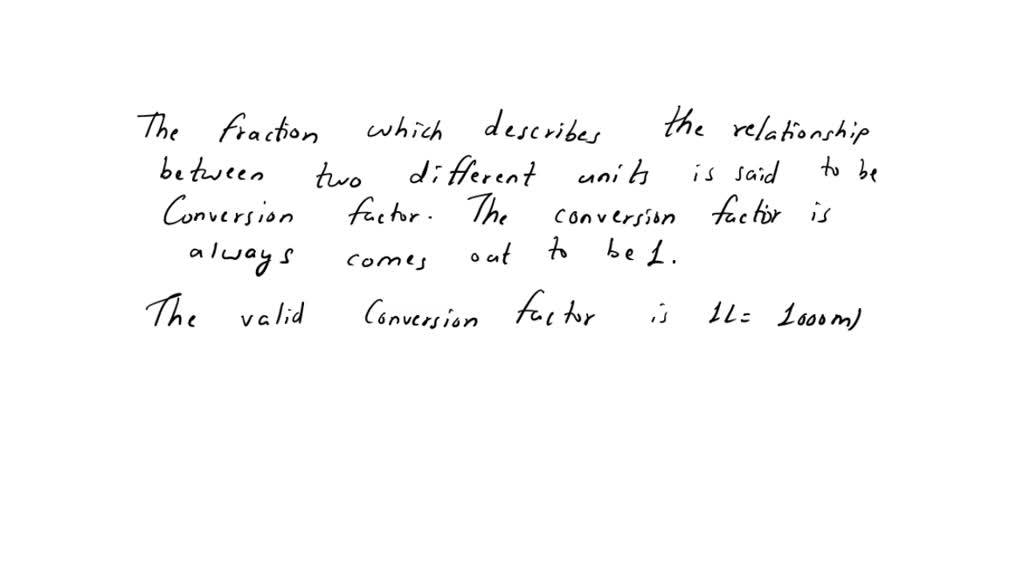 The fraction which describes the relationship
between two different units is said to be
Conversion factor. The conversion factor is
always comes out to be 1.
The valid Conversion factor is 1L= 1000ml